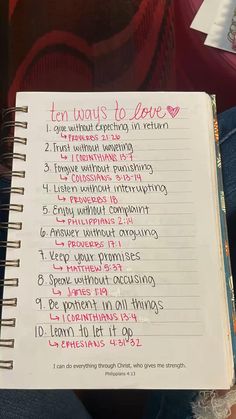 ten ways to love
1. give without expecting in return
↳ PROVERBS 21:26
2. Trust without wavering
↳ 1 CORINTHIANS 13:7
3. Forgive without punishing
↳ COLOSSIANS 3:13-14
4. Listen without interrupting
↳ PROVERBS 18
5. Enjoy without complaint
↳ PHILIPPIANS 2:14
6. Answer without arguing
↳ PROVERBS 17:1
7. Keep your promises
↳ MATTHEW 5:37
8. Speak without accusing
↳ JAMES 1:19
9. Be patient in all things
↳ 1 CORINTHIANS 13:4
10. Learn to let it go
↳ EPHESIANS 4:31-32
I can do everything through Christ, who gives me strength.
Philippians 4:13